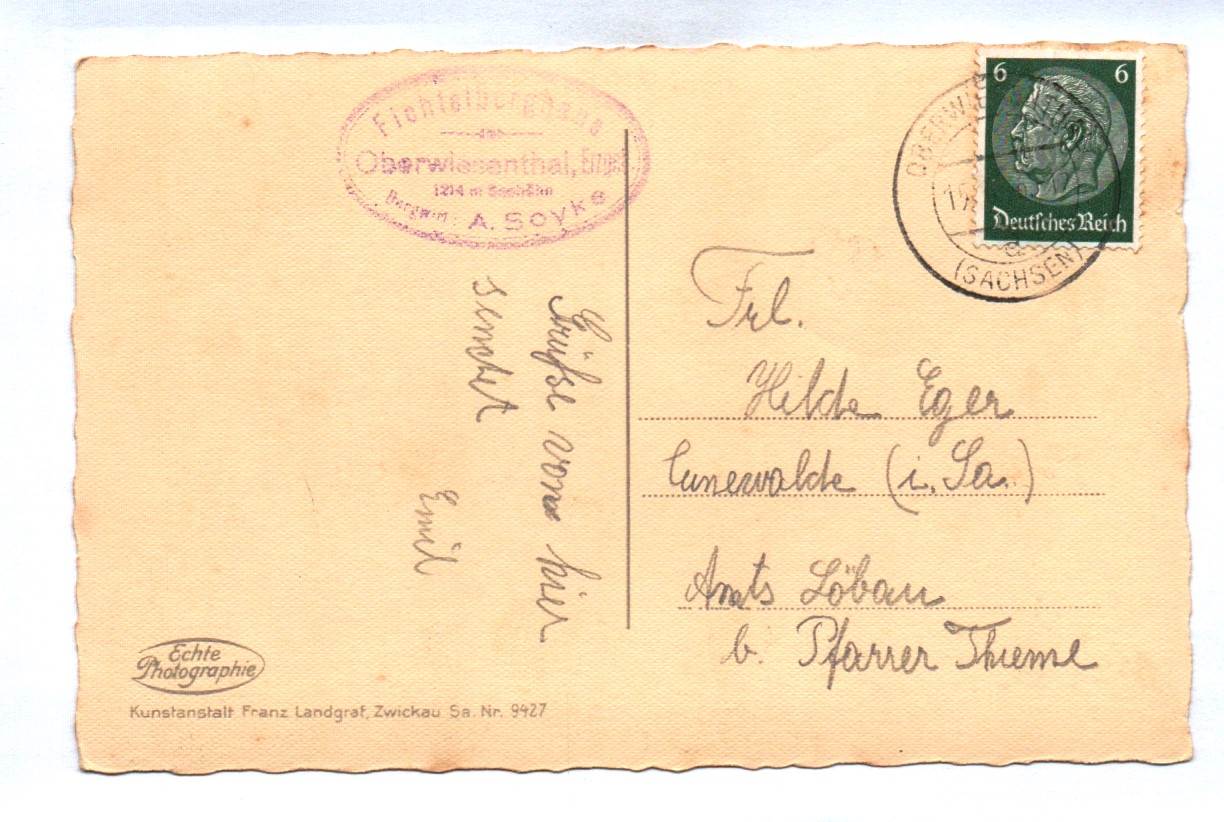 Fichtelberghaus
Oberwiesenthal, Erzgeb.
1214 m Seehöhe
Bergwirt: A. Soyke
6 6
Deutsches Reich
OBERWIESENTHAL
(SACHSEN)
a
Grüße von hier
sendet
Emil
Frl.
Hilde Eger
Cunewalde (i. Sa.)
Amts Löbau
b. Pfarrer Thieme
Echte
Photographie
Kunstanstalt Franz Landgraf, Zwickau Sa. Nr. 9427